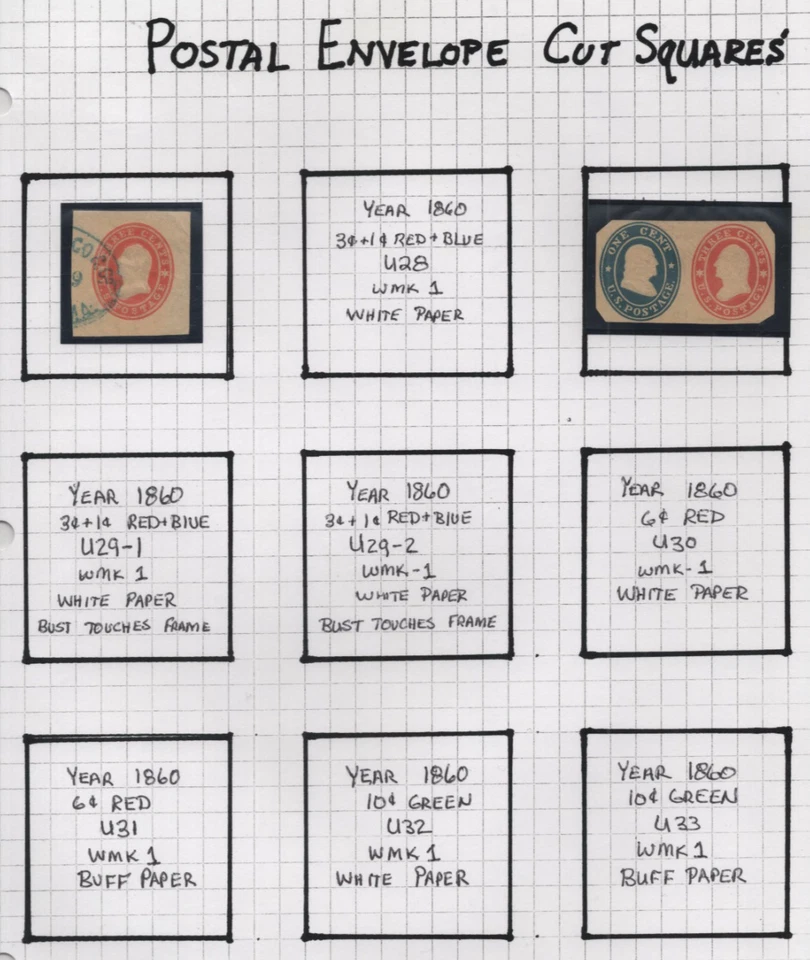 POSTAL ENVELOPE CUT SQUARES
THREE CENTS
U.S. POSTAGE
YEAR 1860
3¢+1¢ RED+BLUE
U28
WMK 1
WHITE PAPER
ONE CENT
U.S. POSTAGE.
THREE CENTS
U.S. POSTAGE
YEAR 1860
3¢+1¢ RED+BLUE
U29-1
WMK 1
WHITE PAPER
BUST TOUCHES FRAME
YEAR 1860
3¢+1¢ RED+BLUE
U29-2
WMK-1
WHITE PAPER
BUST TOUCHES FRAME
YEAR 1860
6¢ RED
U30
WMK-1
WHITE PAPER
YEAR 1860
6¢ RED
U31
WMK 1
BUFF PAPER
YEAR 1860
10¢ GREEN
U32
WMK 1
WHITE PAPER
YEAR 1860
10¢ GREEN
U33
WMK 1
BUFF PAPER